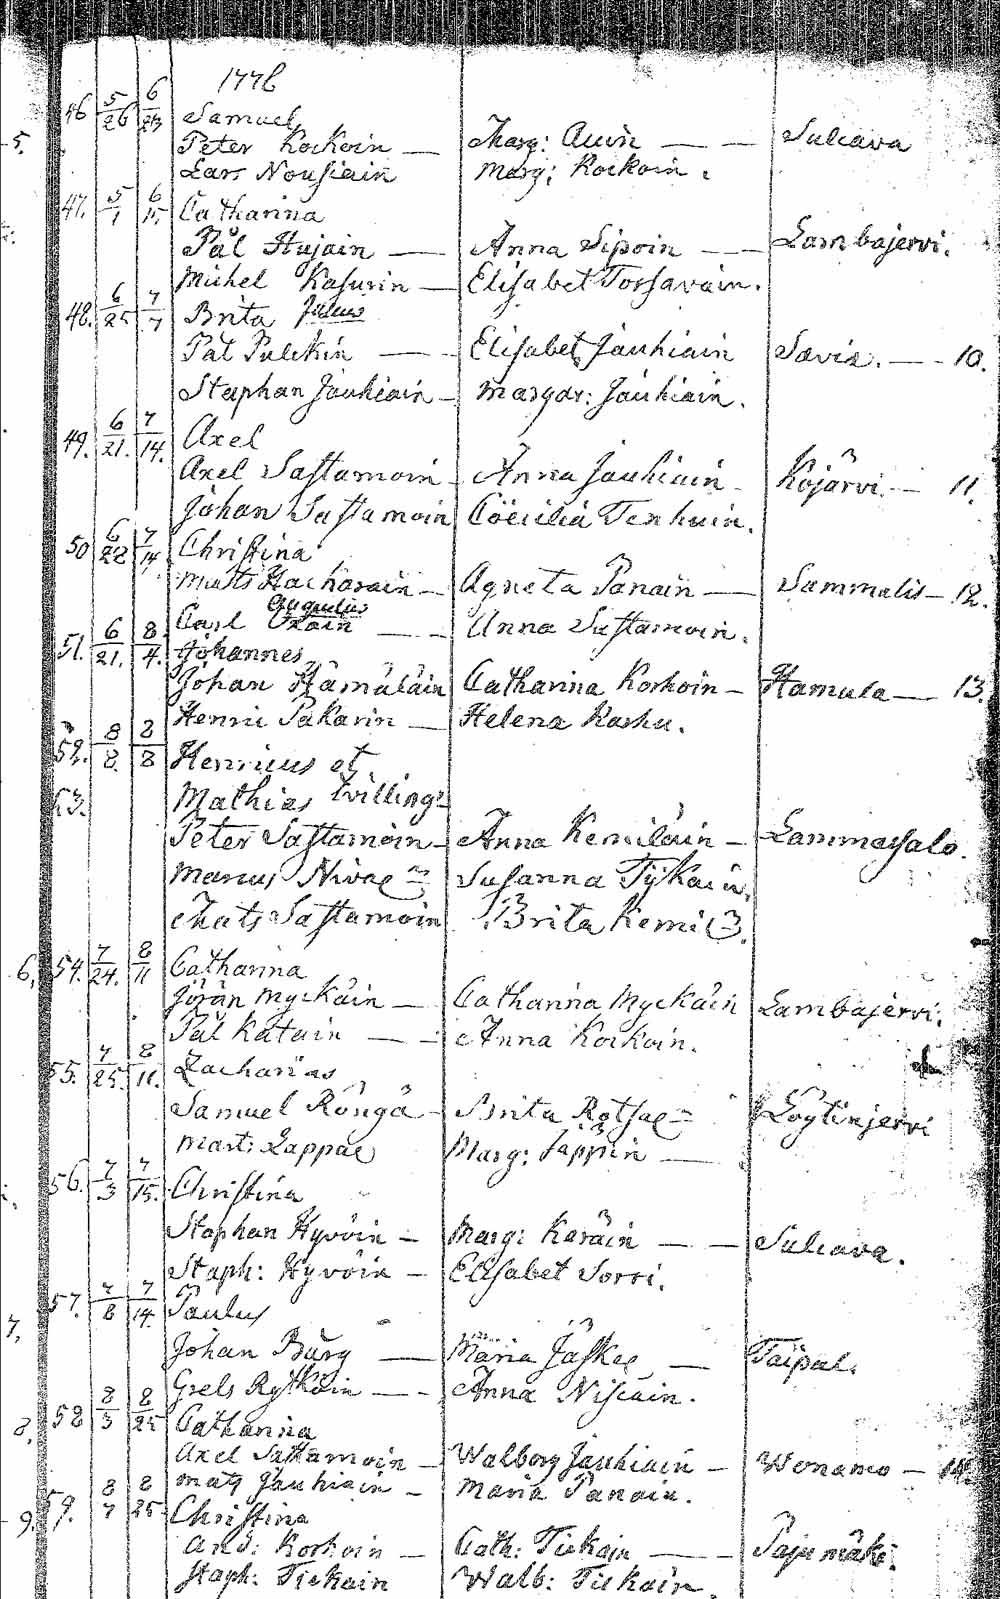 1776
46 5/26 6/23 Samuel
5. Peter Korkoin — Marg: Auin — — Sulcava
Lars Nousiain Marg: Korkoin.
47. 5/1 6/15. Catharina
Pål Hujain — Anna Sipoin — — Lambajervi.
Michel Kasurin — Elisabet Tossavain.
48. 6/25 7/7 Brita Julius
Pål Pulckin — — Elisabet Jauhiain Savia. — 10.
Staphan Jauhiain — Margar: Jauhiain.
49. 6/21. 7/14. Axel
Axel Sastamoin — Anna Jauhiain — Köjärvi — 11.
Johan Sastamoin Cöecilia Tenhuin.
50 6/22 7/14. Christina
Matts Hacharain — Agneta Panain — Sammalis — 12.
Augustus
Carl — — Anna Sastamoin.
51. 6/21. 8/4. Johannes
Johan Hämäläin Catharina Korkoin — Hamula — 13.
Henric Pakarin — Helena Karhu.
52. 8/8. 8/8 Henricus et
53. Mathias tvilling:
Peter Sastamoin — Anna Kemiläin — Lammassalo.
Marcus Nivae Susanna Tyckain.
Mats Sastamoin Brita Kemil
6. 54. 7/24. 8/11 Catharina
Jöran Myckäin — Catharina Myckäin Lambajervi.
Pål Katain — — Anna Korkoin.
55. 7/25. 8/11. Zacharias
Samuel Röngä — Brita Rotsae Löytinjervi
Mart: Lappae Marg: Jäppin —
56. 7/3 7/15. Christina
Staphan Hyvöin — Marg: Karäin — — Sulcava.
Staph: Hyvöin — Elisabet Sorri.
57. 7/8 7/14. Paulus
7. Johan Burg — Maria Jäskee — Taipal.
Grels Rytköin — — Anna Niscain.
8. 58 8/3 8/25 Catharina
Axel Sastamoin — Walborg Jauhiain — Wenamo — 14.
Mats Jauhiain — Maria Panain.
9. 59. 8/7 8/25. Christina
And: Korkoin — Cath: Tickain — Pajumäki.
Staph: Tickain Walb: Tickain.